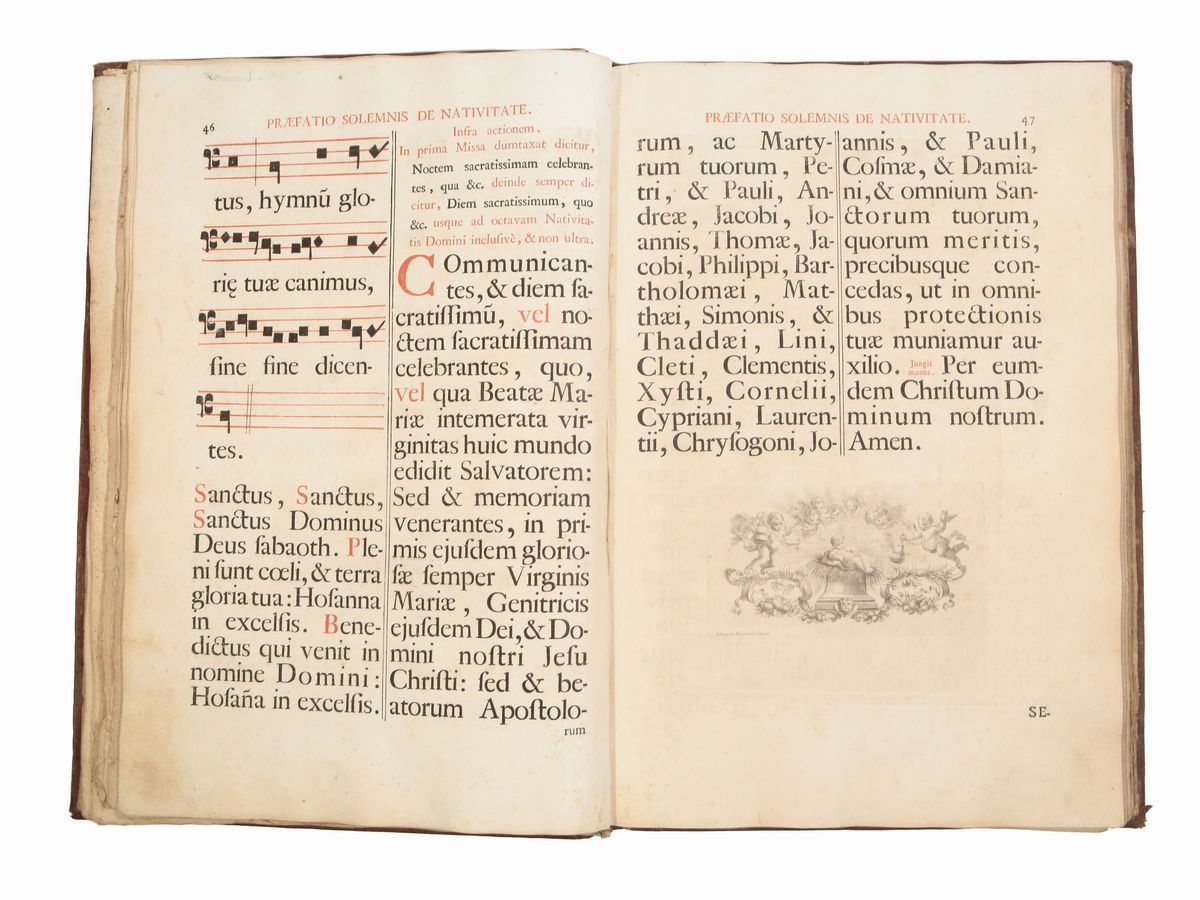 46
PRÆFATIO SOLEMNIS DE NATIVITATE.
tus, hymnũ glo-
rię tuæ canimus,
ſine fine dicen-
tes.
Sanctus, Sanctus,
Sanctus Dominus
Deus ſabaoth. Ple-
ni ſunt cœli, & terra
gloria tua: Hoſanna
in excelſis. Bene-
dictus qui venit in
nomine Domini:
Hoſaña in excelſis.
Infra actionem.
In prima Missa dumtaxat dicitur,
Noctem sacratissimam celebran-
tes, qua &c. deinde semper di-
citur, Diem sacratissimum, quo
&c. usque ad octavam Nativita-
tis Domini inclusivè, & non ultra.
COmmunican-
tes, & diem ſa-
cratiſſimũ, vel no-
ctem ſacratiſſimam
celebrantes, quo,
vel qua Beatæ Ma-
riæ intemerata vir-
ginitas huic mundo
edidit Salvatorem:
Sed & memoriam
venerantes, in pri-
mis ejuſdem glorio-
ſæ ſemper Virginis
Mariæ, Genitricis
ejuſdem Dei, & Do-
mini noſtri Jeſu
Chriſti: ſed & be-
atorum Apoſtolo-
rum
PRÆFATIO SOLEMNIS DE NATIVITATE.
47
rum, ac Marty-
rum tuorum, Pe-
tri, & Pauli, An-
dreæ, Jacobi, Jo-
annis, Thomæ, Ja-
cobi, Philippi, Bar-
tholomæi, Mat-
thæi, Simonis, &
Thaddæi, Lini,
Cleti, Clementis,
Xyſti, Cornelii,
Cypriani, Lauren-
tii, Chryſogoni, Jo-
annis, & Pauli,
Coſmæ, & Damia-
ni, & omnium San-
ctorum tuorum,
quorum meritis,
precibusque con-
cedas, ut in omni-
bus protectionis
tuæ muniamur au-
xilio. Jungit manus. Per eum-
dem Chriſtum Do-
minum noſtrum.
Amen.
SE-